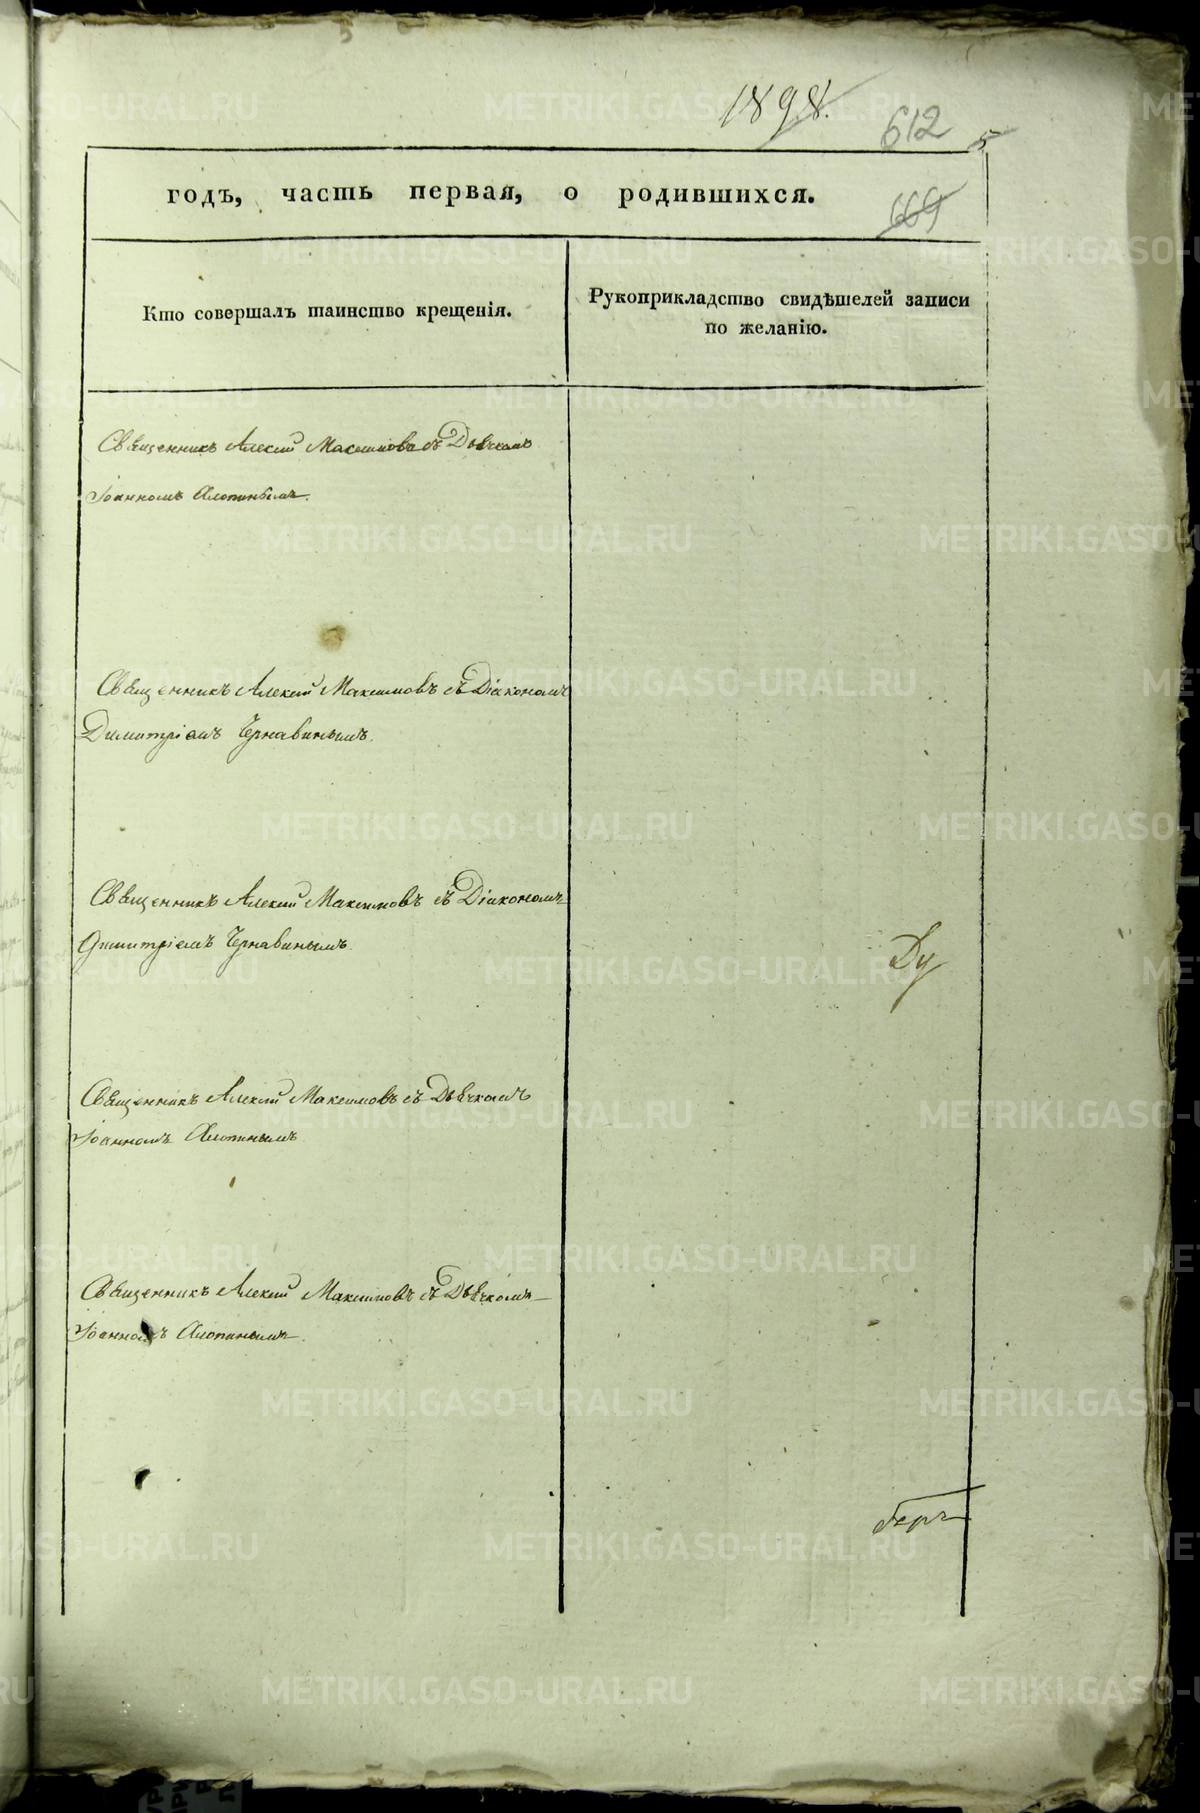 1898.
612
5
669
годъ, часть первая, о родившихся.
Кто совершалъ таинство крещенія.
Рукоприкладство свидѣтелей записи
по желанію.
Священникъ Алексій Максимовъ съ Дьячкомъ
Іоанномъ Алопинымъ.
Священникъ Алексій Максимовъ съ Діакономъ
Димитріемъ Чернавинымъ.
Священникъ Алексій Максимовъ съ Діакономъ
Димитріемъ Чернавинымъ.
Ду
Священникъ Алексій Максимовъ съ Дьячкомъ
Іоанномъ Алопинымъ
Священникъ Алексій Максимовъ съ Дьячкомъ
Іоанномъ Алопинымъ.
METRIKI.GASO-URAL.RU